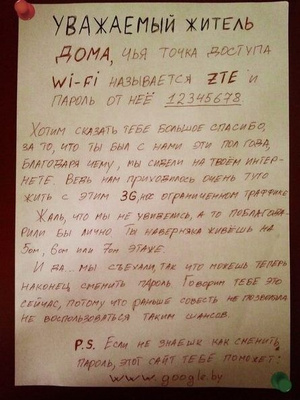 УВАЖАЕМЫЙ ЖИТЕЛЬ
ДОМА, ЧЬЯ ТОЧКА ДОСТУПА
Wi-Fi НАЗЫВАЕТСЯ ZTE И
ПАРОЛЬ ОТ НЕЁ 12345678
ХОТИМ СКАЗАТЬ ТЕБЕ БОЛЬШОЕ СПАСИБО,
ЗА ТО, ЧТО ТЫ БЫЛ С НАМИ ЭТИ ПОЛ ГОДА,
БЛАГОДАРЯ ЧЕМУ, МЫ СИДЕЛИ НА ТВОЁМ ИНТЕР-
НЕТЕ. ВЕДЬ НАМ ПРИХОДИЛОСЬ ОЧЕНЬ ТУГО
ЖИТЬ С ЭТИМ 3G, ОГРАНИЧЕННОМ ТРАФФИКЕ
ЖАЛЬ, ЧТО МЫ НЕ УВИДЕЛИСЬ, А ТО ПОБЛАГОДА-
РИЛИ БЫ ЛИЧНО ТЫ НАВЕРНЯКА ЖИВЁШЬ НА
5ОМ, 6ОМ ИЛИ 7ОМ ЭТАЖЕ.
И ДА... МЫ СЪЕХАЛИ, ТАК ЧТО МОЖЕШЬ ТЕПЕРЬ
НАКОНЕЦ СМЕНИТЬ ПАРОЛЬ. ГОВОРИМ ТЕБЕ ЭТО
СЕЙЧАС, ПОТОМУ ЧТО РАНЬШЕ СОВЕСТЬ НЕ ПОЗВОЛЯЛА
НЕ ВОСПОЛЬЗОВАТЬСЯ ТАКИМ ШАНСОМ.
P.S. ЕСЛИ НЕ ЗНАЕШЬ КАК СМЕНИТЬ
ПАРОЛЬ, ЭТОТ САЙТ ТЕБЕ ПОМОЖЕТ:
www.google.by